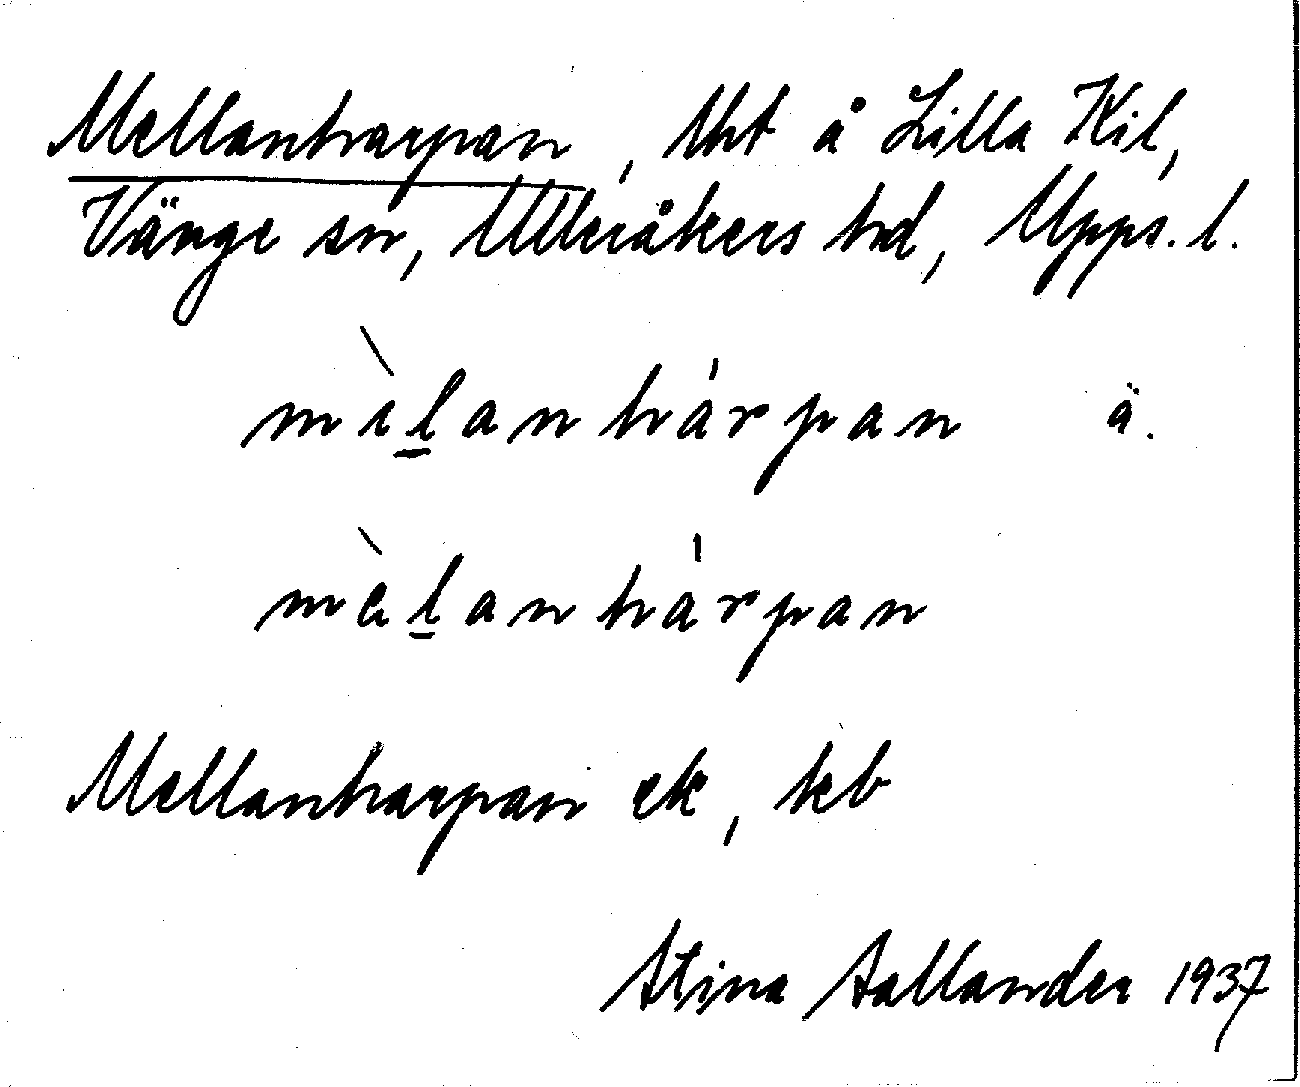 Mellanharpan, tht å Lilla Kil,
Vänge sn, Ulleråkers hd, Upps. l.
mɩ̀lanhárpan ä.
mèlanhárpan
Mellanharpan ek, kb
Stina Sallander 1937